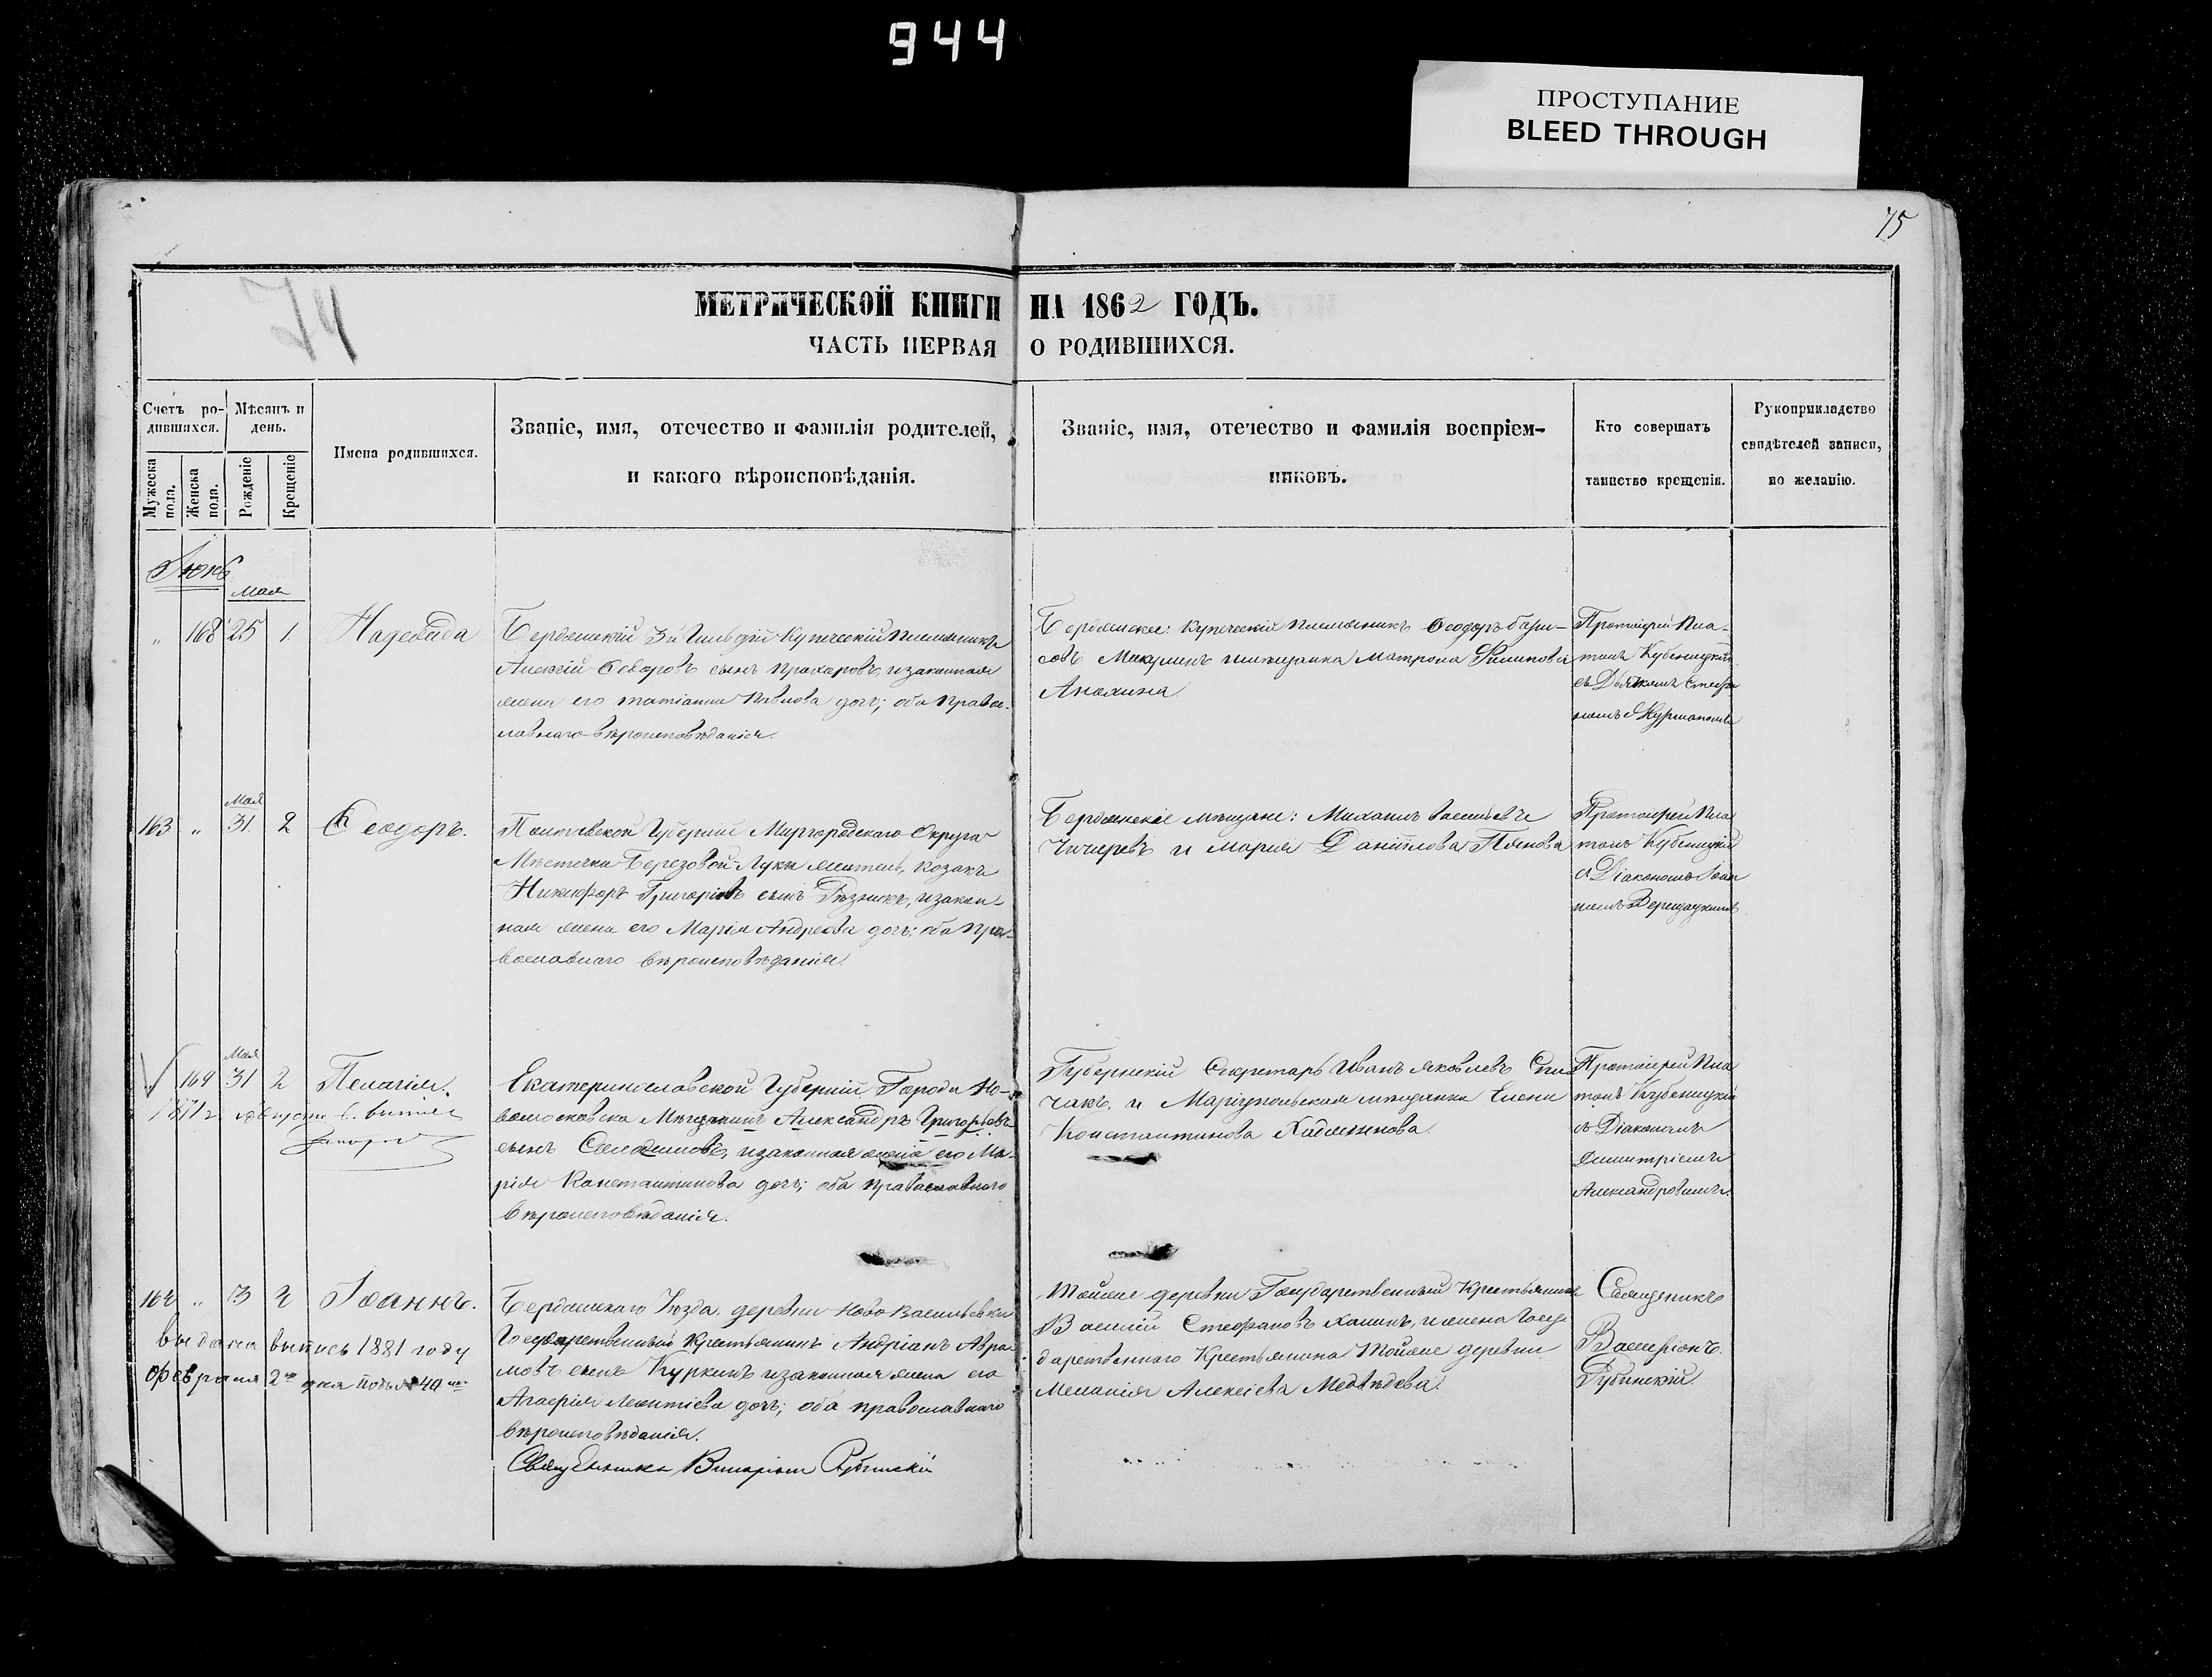 944
ПРОСТУПАНИЕ
BLEED THROUGH
75
74
МЕТРИЧЕСКОЙ КНИГИ НА 1862 ГОДЪ.
ЧАСТЬ ПЕРВАЯ О РОДИВШИХСЯ.
Счетъ ро-
дившихся.
Мѣсяцъ и
день.
Мужеска
пола.
Женска
пола.
Рожденіе
Крещеніе
Имена родившихся.
Званіе, имя, отечество и фамилія родителей,
и какого вѣроисповѣданія.
Званіе, имя, отечество и фамилія воспріем-
никовъ.
Кто совершатъ
таинство крещенія.
Рукоприкладство
свидѣтелей записи,
по желанію.
Іюнь
мая
" 168 25 1. Надежда
Бердянскій 3й Гильдій Купеческій Племянникъ
Алексій Ѳеодоровъ сынъ Прохоровъ, и законная
жена его Татіанна Павлова дочь; оба Правос-
лавнаго вѣроисповѣданія.
Бердянскіе: Купеческій племянникъ Ѳеодоръ
совъ мищанка Матрона Филипова
Анохина
Протоіерей Пла-
тонъ Кубеницкій
съ Дьячкомъ Стефа
номъ
163 " Мая 31. 2 Ѳеодоръ.
Полтавской Губерніи Миргородскаго Округа
Мѣстечка Березовой-Луки житель, козакъ
Никифоръ Григоріевъ сынъ Рѣзникъ, и закон-
ная жена его Марія Андреева дочь; оба Пра-
вославнаго вѣроисповѣданія.
Бердянскіе мѣщане: Михаилъ Васильевъ
Чичеревъ и Марія Даніилова Панова
Протоіерей Пла
тонъ Кубеницкій
съ Діакономъ Іоан
номъ
" 169 Мая 31 2 Пелагія.
1871 г. августа 6. выпись
Екатеринославской Губерніи Города Но-
вомосковска Мѣщанинъ Александръ Григорьевъ
сынъ и законная жена его Ма-
рія Константинова дочь; оба православнаго
вѣроисповѣданія.
Губернскій Секретарь Иванъ Яковлевъ Спи
чакъ, и Маріупольская мѣщанка Елена
Константинова
Протоіерей Пла
тонъ Кубеницкій
съ Діакономъ
Димитріемъ
Александровымъ.
164 " 3 2 Іоаннъ.
выдана выпись 1881 году
февраля 2го дня подъ № 40
Бердянскаго Уѣзда, деревни Ново Васильевки
Государственный Крестьянинъ Андріанъ Авра-
мовъ сынъ Куркинъ и законная жена его
Агафія Леонтіева дочь; оба православнаго
вѣроисповѣданія.
Священникъ Рубинскій
Тойже деревни Государственный Крестьянинъ
Василій Стефановъ и жена Госу
дарственнаго Крестьянина Тойже деревни
Меланія Алексіева Медвѣдева.
Священникъ
Рубинскій